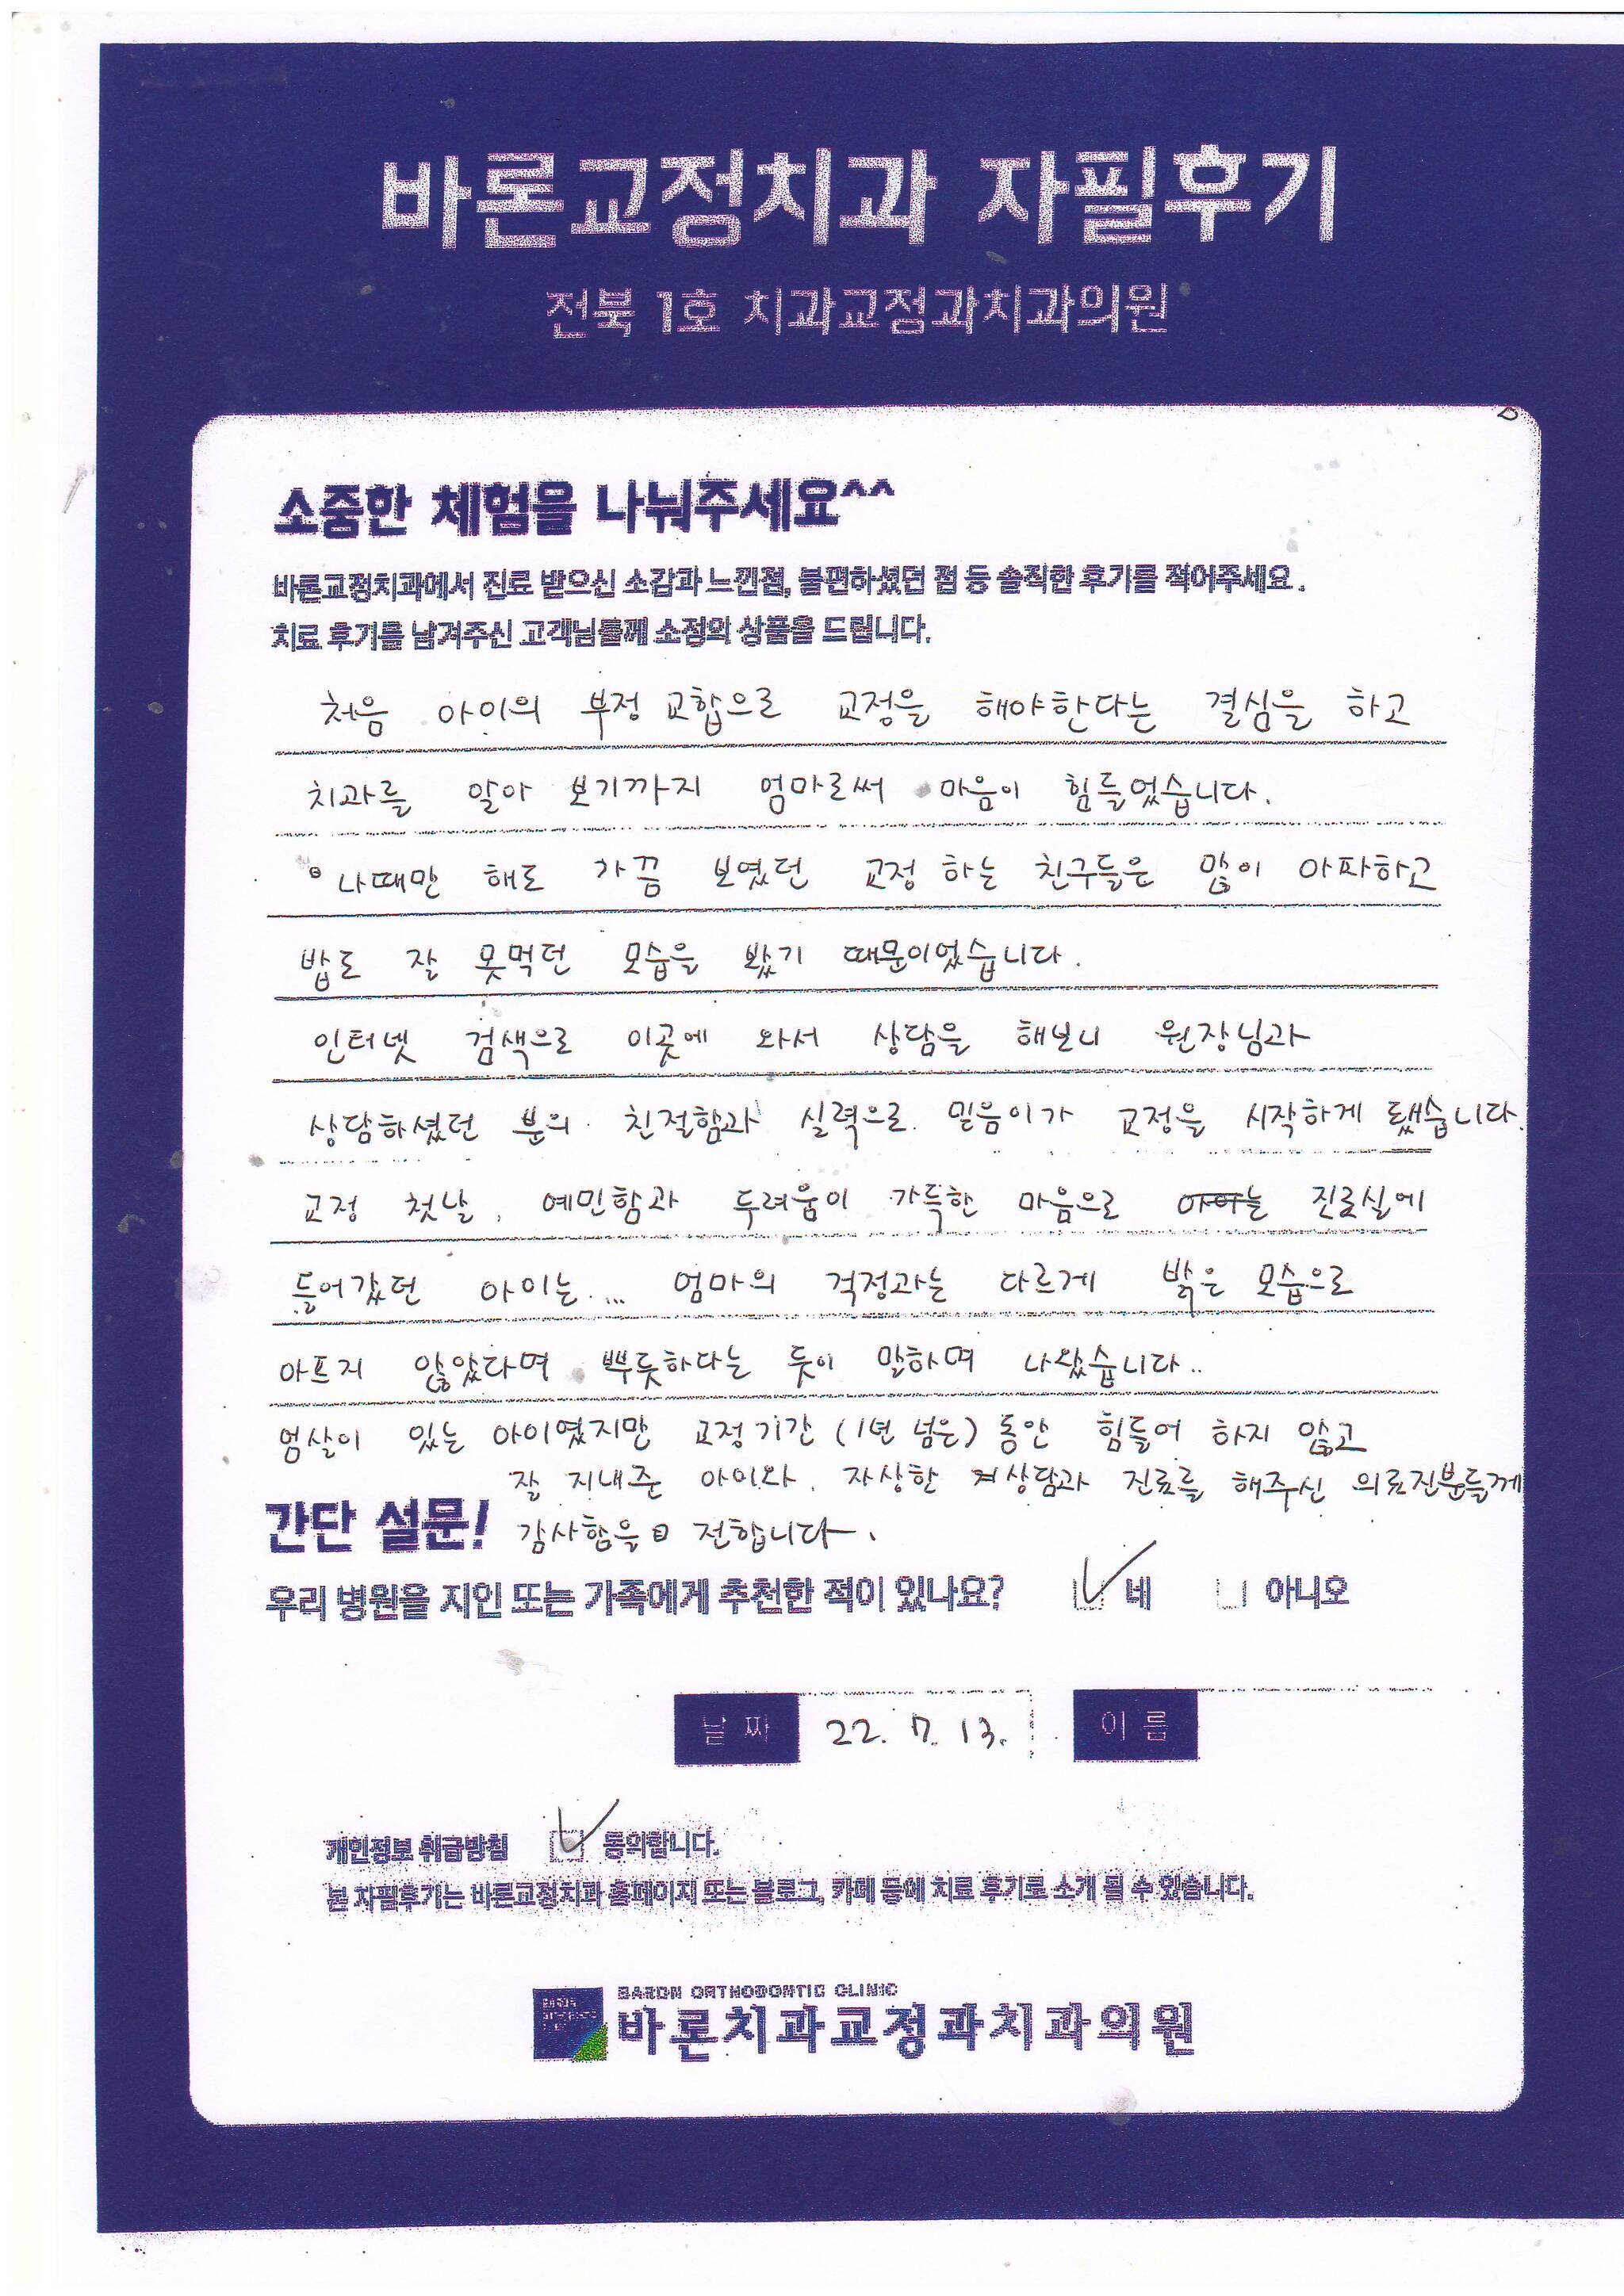 바론교정치과 자필후기
전북 1호 치과교정과치과의원
소중한 체험을 나눠주세요^^
바론교정치과에서 진료 받으신 소감과 느낀점, 불편하셨던 점 등 솔직한 후기를 적어주세요.
치료 후기를 남겨주신 고객님들께 소정의 상품을 드립니다.
처음 아이의 부정교합으로 교정을 해야한다는 결심을 하고
치과를 알아 보기까지 엄마로써 마음이 힘들었습니다.
나때만 해도 가끔 보였던 교정 하는 친구들은 많이 아파하고
밥도 잘 못먹던 모습을 봤기 때문이었습니다.
인터넷 검색으로 이곳에 와서 상담을 해보니 원장님과
상담하셨던 분의 친절함과 실력으로 믿음이가 교정을 시작하게 됐습니다.
교정 첫날, 예민함과 두려움이 가득한 마음으로 진료실에
들어갔던 아이는... 엄마의 걱정과는 다르게 밝은 모습으로
아프지 않았다며 뿌듯하다는 듯이 말하며 나왔습니다..
엄살이 있는 아이였지만 교정기간 (1년 넘은) 동안 힘들어 하지 않고
잘 지내준 아이와, 자상한 상담과 진료를 해주신 의료진분들께
간단 설문! 감사함을 전합니다.
우리 병원을 지인 또는 가족에게 추천한 적이 있나요? 네 아니오
날짜 22. 7. 13. 이름
개인정보 취급방침 동의합니다.
본 자필후기는 바론교정치과 홈페이지 또는 블로그, 카페 등에 치료 후기로 소개 될 수 있습니다.
BARON ORTHODONTIC CLINIC
바론치과교정과치과의원